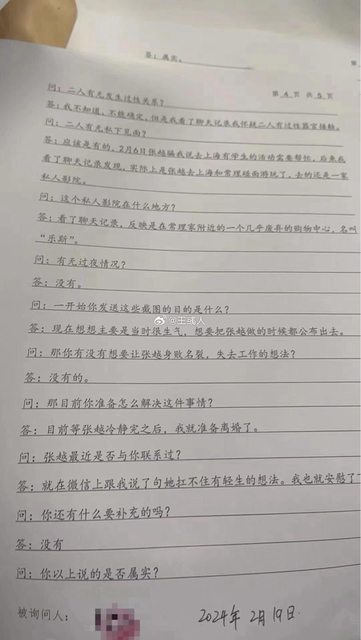 答：属实。
第 4 页 共 5 页
问：二人有无发生过性关系？
答：我不知道，不能确定，但是我看了聊天记录我怀疑二人有过性器官接触。
问：二人有无私下见面？
答：应该是有的，2月6日张越骗我说去上海有学生的活动需要帮忙，后来我
看了聊天记录发现，实际上是张越去上海和常理碰面游玩了，去的还是一家
私人影院。
问：这个私人影院在什么地方？
答：看了聊天记录，反映是在常理家附近的一个几乎废弃的购物中心，名叫
“乐斯”。
问：有无过夜情况？
答：没有。
问：一开始你发送这些截图的目的是什么？
@王彧人
答：现在想想主要是当时很生气，想要把张越做的时候都公布出去。
问：那你有没有想要让张越身败名裂，失去工作的想法？
答：没有的。
问：那目前你准备怎么解决这件事情？
答：目前等张越冷静完之后，我就准备离婚了。
问：张越最近是否与你联系过？
答：就在微信上跟我说了句她扛不住有轻生的想法。我也就安慰了
问：你还有什么要补充的吗？
答：没有
问：你以上说的是否属实？
被询问人：
2024年 2月19日